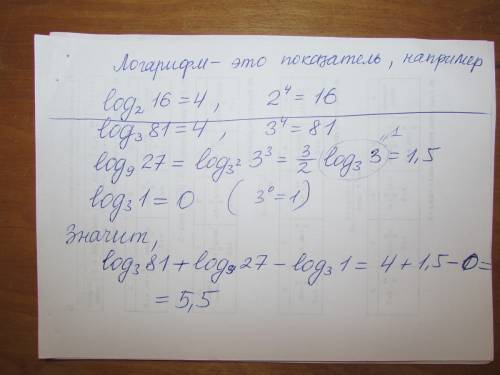 Логарифм – это показатель, например
log₂ 16 = 4, 2⁴ = 16
log₃ 81 = 4, 3⁴ = 81
log₉ 27 = log₃² 3³ = 3/2 log₃ 3 = 1,5
"1
log₃ 1 = 0 (3⁰ = 1)
Значит,
log₃ 81 + log₉ 27 – log₃ 1 = 4 + 1,5 – 0 =
= 5,5